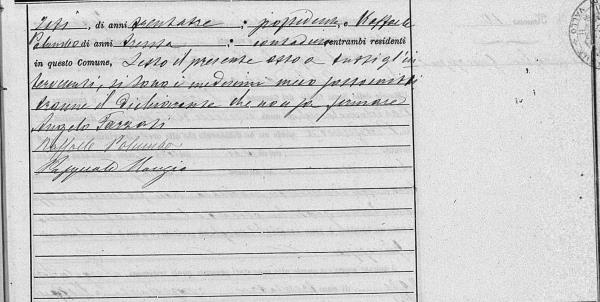 zasi, di anni trentatre ; possidente, e Raffaele
Palumbo di anni trenta ; contadino entrambi residenti
in questo Comune, Letto il presente atto a tutti gl'in
tervenuti, si sono i medesimi meco sottoscritti
tranne il dichiarante che non sa firmare
Angelo Tarzasi
Raffaele Palumbo
Pasquale Mangia